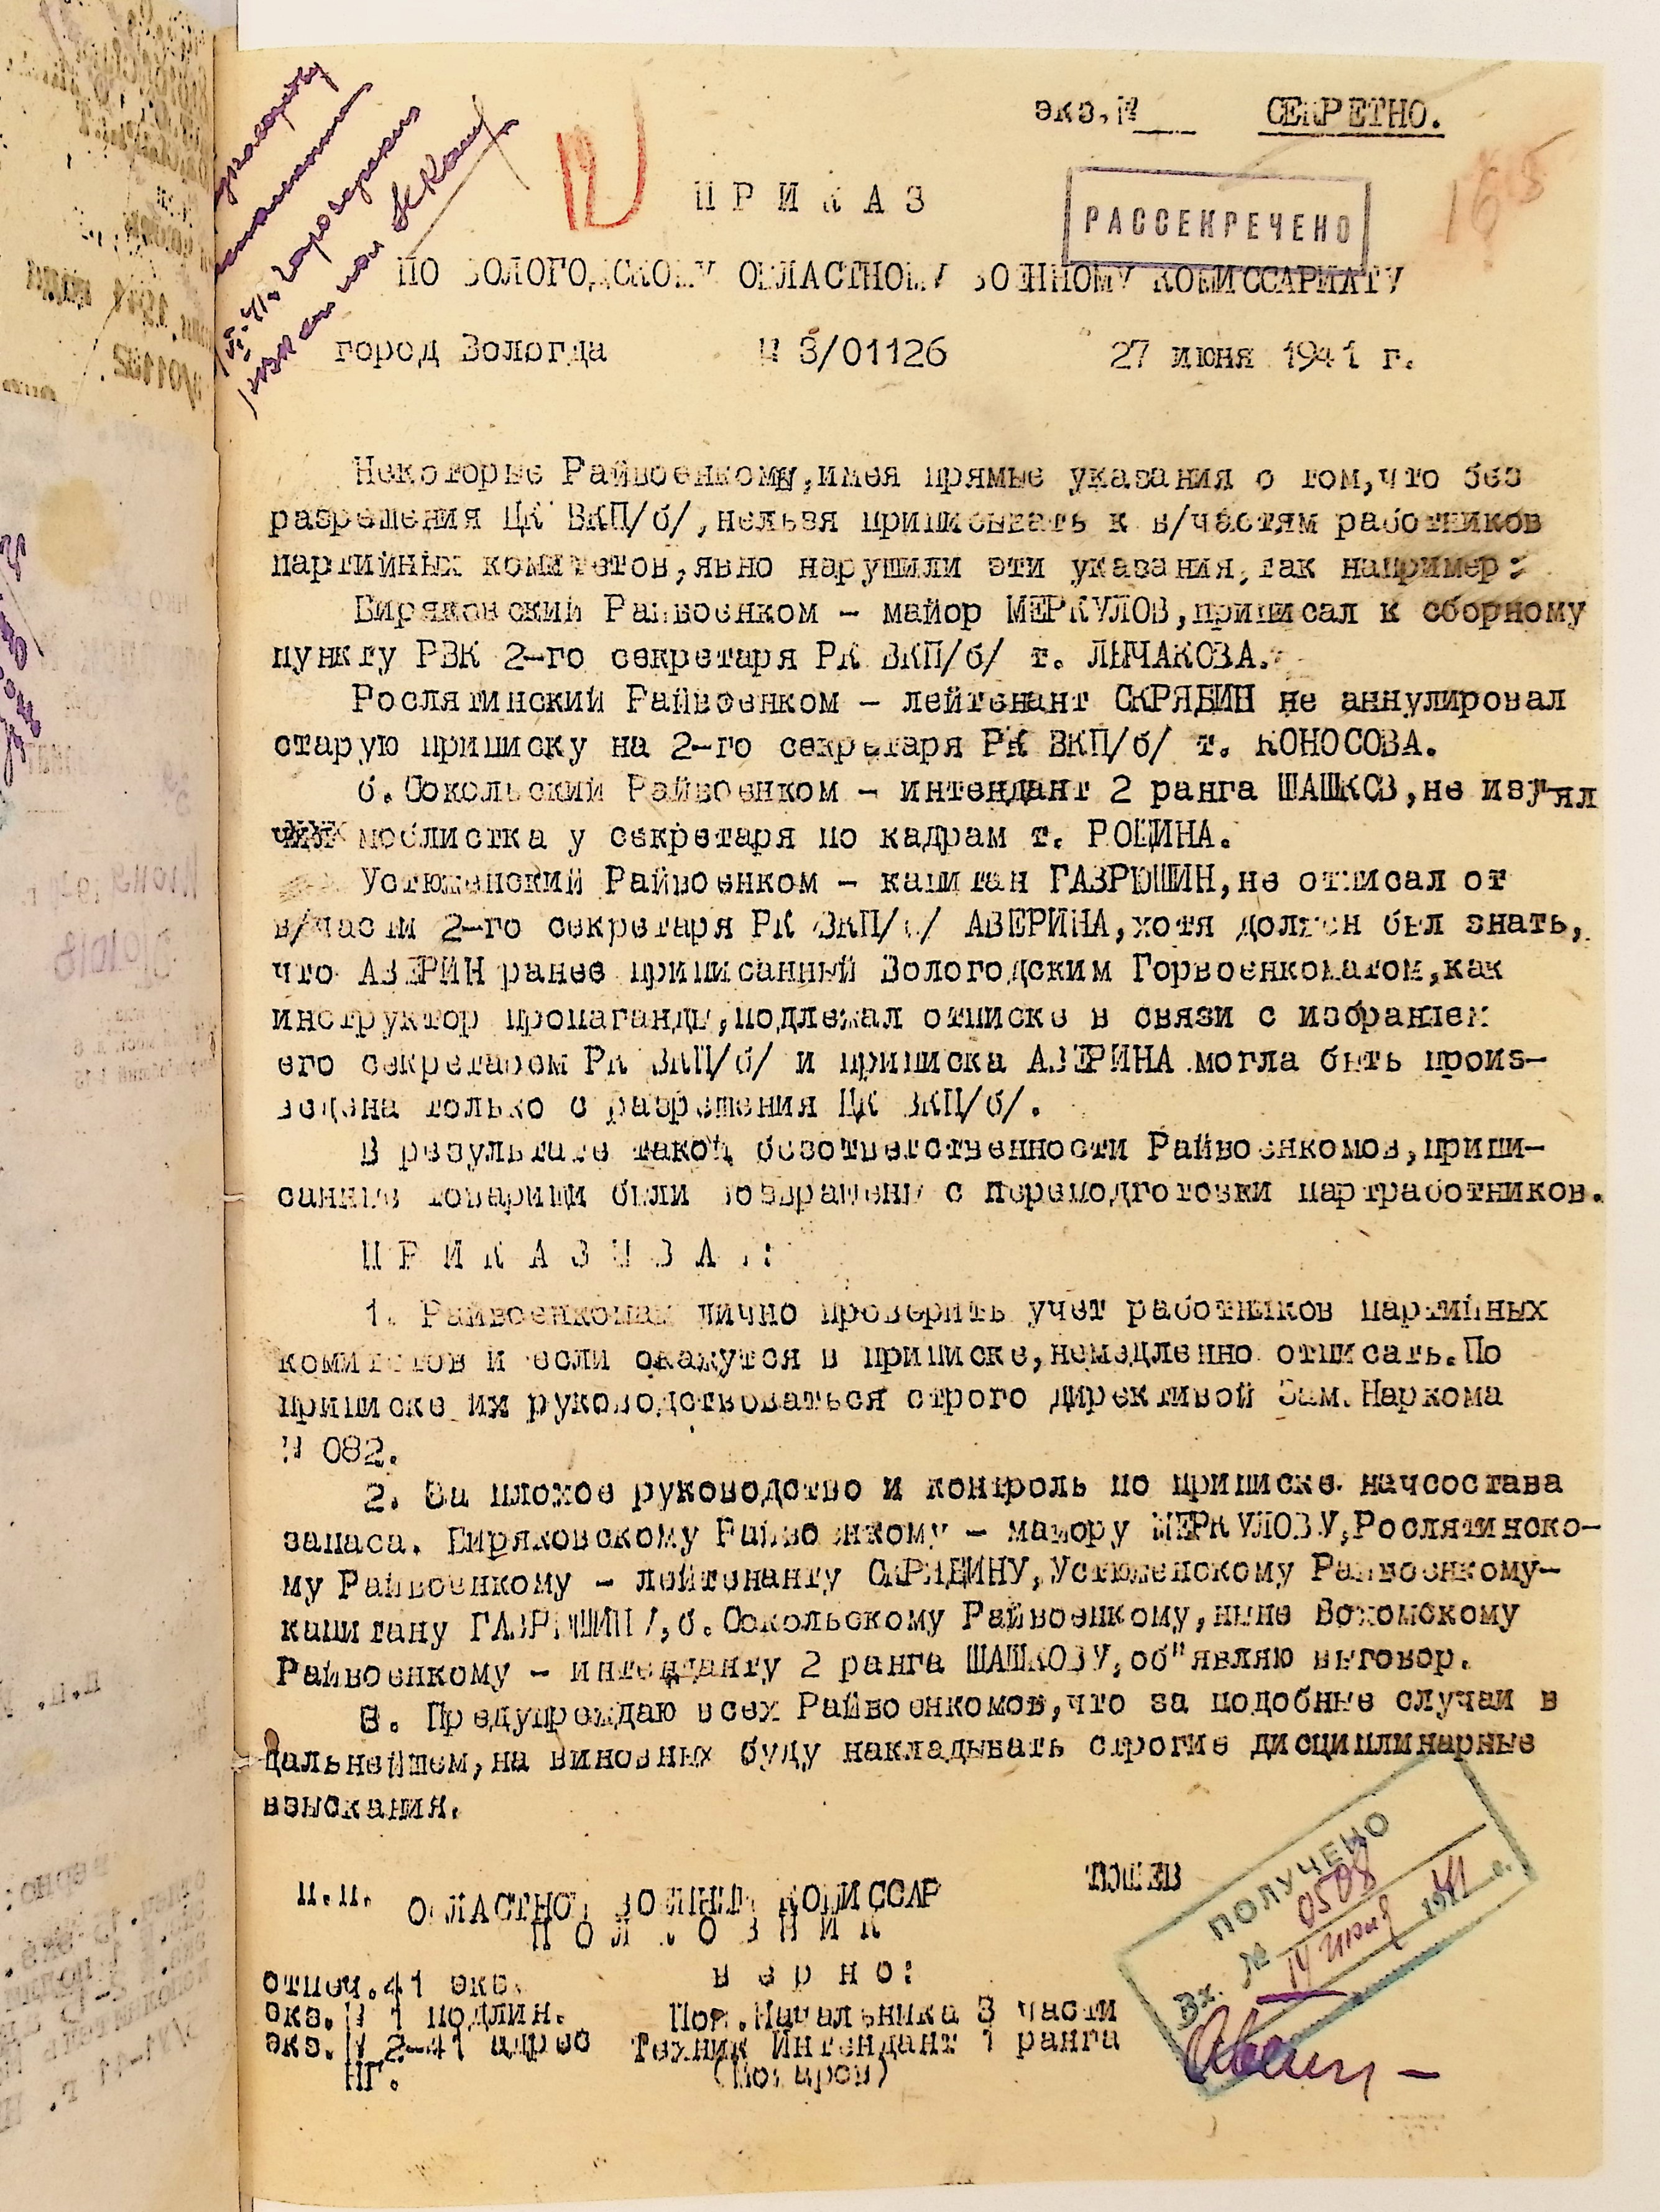 экз.№ СЕКРЕТНО.
П Р И К А З
РАССЕКРЕЧЕНО
ПО ВОЛОГОДСКОМУ ОБЛАСТНОМУ ВОЕННОМУ КОМИССАРИАТУ
город Вологда № 3/01126 27 июня 1941 г.
Некоторые Райвоенкомы,имея прямые указания о том,что без
разрешения ЦК ВКП/б/,нельзя приписывать к в/частям работников
партийных комитетов,явно нарушили эти указания,так например:
Биряковский Райвоенком – майор МЕРКУЛОВ,приписал к сборному
пункту РВК 2-го секретаря РК ВКП/б/ т. ЛЫЧАКОВА.
Рослятинский Райвоенком – лейтенант СКРЯБИН не аннулировал
старую приписку на 2-го секретаря РК ВКП/б/ т. КОНОСОВА.
б.Сокольский Райвоенком – интендант 2 ранга ШАШКОВ,не изъял
моблистка у секретаря по кадрам т. РОЩИНА.
Устюженский Райвоенком – капитан ГАВРЮШИН,не отписал от
в/части 2-го секретаря РК ВКП/б/ АВЕРИНА,хотя должен был знать,
что АВЕРИН ранее приписанный Вологодским Горвоенкоматом,как
инструктор пропаганды,подлежал отписке в связи с избранием
его секретарем РК ВКП/б/ и приписка АВЕРИНА могла быть произ-
ведена только с разрешения ЦК ВКП/б/.
В результате такой безответственности Райвоенкомов,припи-
санные товарищи были возвращены с переподготовки партработников.
П Р И К А З Ы В А Ю:
1. Райвоенкомам лично проверить учет работников партийных
комитетов и если окажутся в приписке,немедленно отписать.По
приписке их руководствоваться строго директивой Зам.Наркома
№ 082.
2. За плохое руководство и контроль по приписке начсостава
запаса. Биряковскому Райвоенкому – майору МЕРКУЛОВУ,Рослятинско-
му Райвоенкому – лейтенанту СКРЯБИНУ,Устюженскому Райвоенкому-
капитану ГАВРЮШИНУ,б.Сокольскому Райвоенкому,ныне Вохомскому
Райвоенкому – интенданту 2 ранга ШАШКОВУ,об"являю выговор.
3. Предупреждаю всех Райвоенкомов,что за подобные случаи в
дальнейшем,на виновных буду накладывать строгие дисциплинарные
взыскания.
п.п. ОБЛАСТНОЙ ВОЕННЫЙ КОМИССАР
П О Л К О В Н И К
в е р н о:
отпеч.41 экз.
экз.№ 1 подлин. Пом.Начальника 3 части
экз.№ 2-41 адрес Техник Интендант 1 ранга
НГ.
ПОЛУЧЕНО
Вх. № 0508
IV 1941 г.